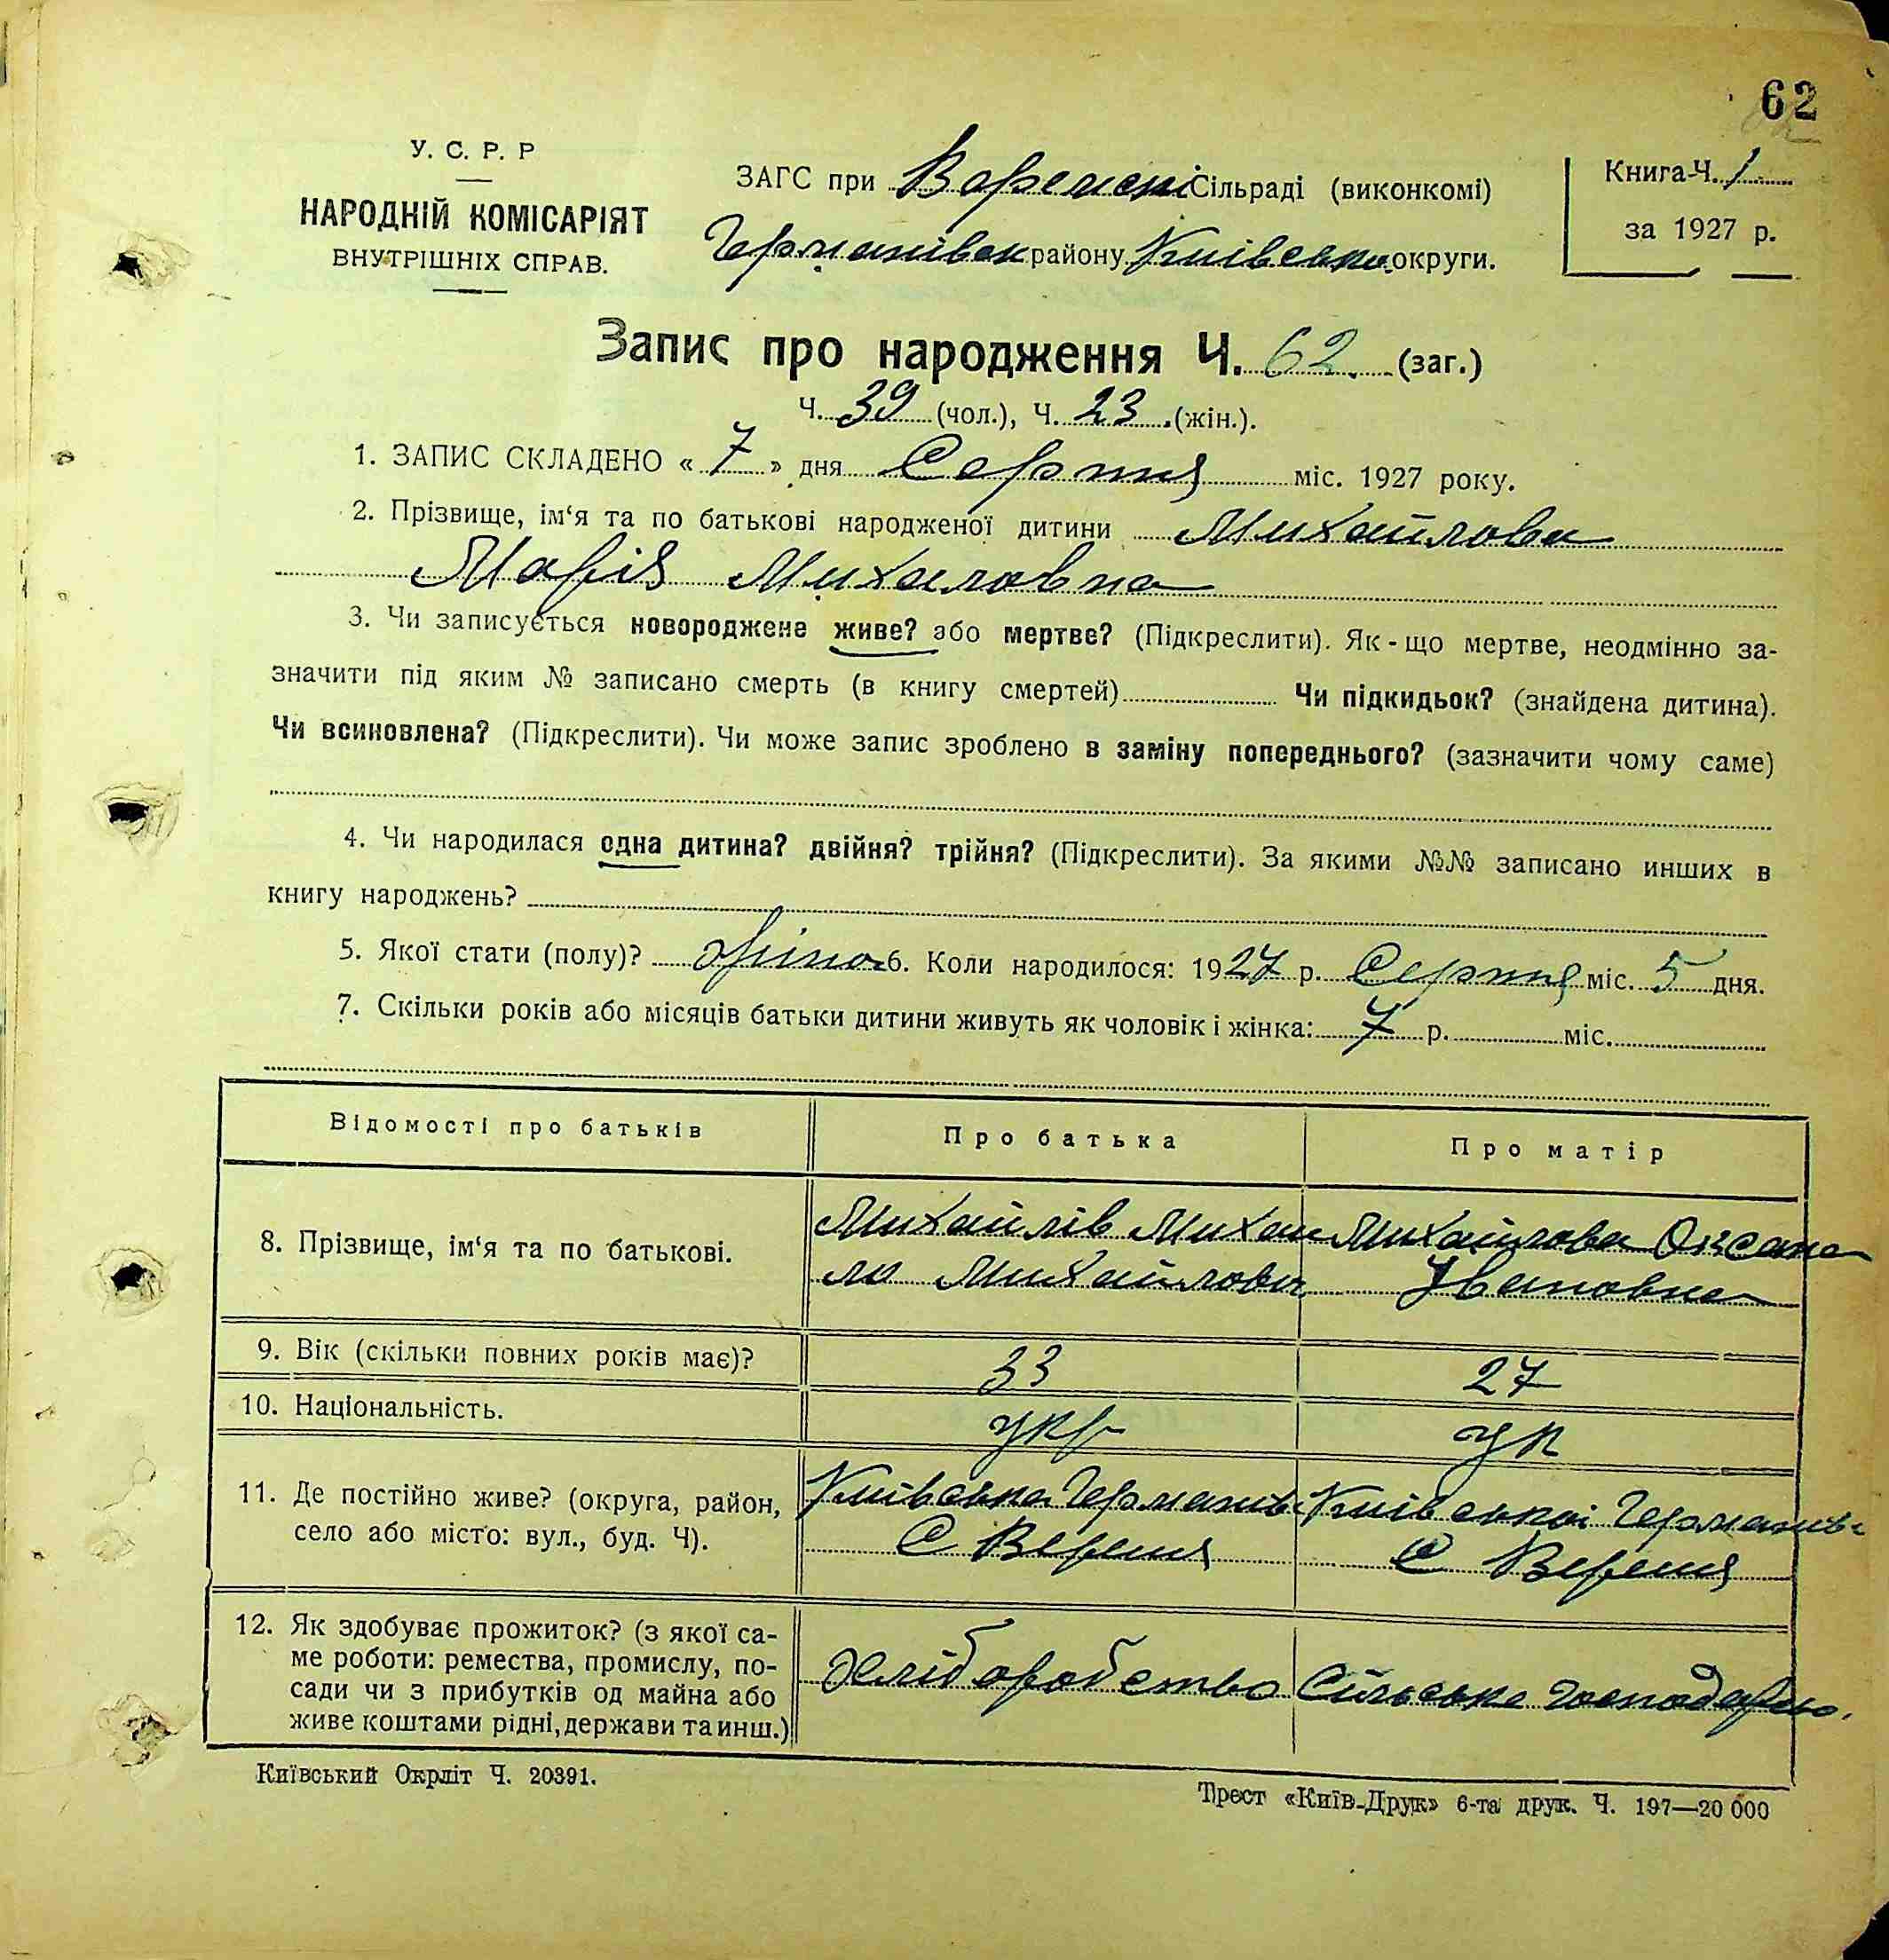 62
У. С. Р. Р
НАРОДНІЙ КОМІСАРІЯТ
ВНУТРІШНІХ СПРАВ.
ЗАГС при Сільраді (виконкомі)
Германівськ району Київсько округи.
Книга Ч. 1
за 1927 р.
Запис про народження Ч. 62. (заг.)
Ч. 39 (чол.), Ч. 23 (жін.).
1. ЗАПИС СКЛАДЕНО « 7 » дня Серпня міс. 1927 року.
2. Прізвище, ім‘я та по батькові народженої дитини Михайлова
Марія Михаловна
3. Чи записується новороджене живе? або мертве? (Підкреслити). Як-що мертве, неодмінно за-
значити під яким № записано смерть (в книгу смертей) Чи підкидьок? (знайдена дитина).
Чи всиновлена? (Підкреслити). Чи може запис зроблено в заміну попереднього? (зазначити чому саме)
4. Чи народилася одна дитина? двійня? трійня? (Підкреслити). За якими №№ записано инших в
книгу народжень?
5. Якої стати (полу)? жіноч 6. Коли народилося: 1927 р. Серпня міс. 5 дня.
7. Скільки років або місяців батьки дитини живуть як чоловік і жінка: 7 р. міс.
Відомості про батьків Про батька Про матір
8. Прізвище, ім‘я та по батькові. Михайлів Михай Михайлова Оксана
ло Михайлович Івановна
9. Вік (скільки повних років має)? 33 27
10. Національність. укр ук
11. Де постійно живе? (округа, район, Київська Германівс Київської Германівс
село або місто: вул., буд. Ч). С Веремя С Веремя
12. Як здобуває прожиток? (з якої са-
ме роботи: ремества, промислу, по-
сади чи з прибутків од майна або Хліборобство Сільське господарью.
живе коштами рідні, держави та инш.)
Київський Окрліт Ч. 20391.
Трест «Київ-Друк» 6-та друк. Ч. 197—20 000